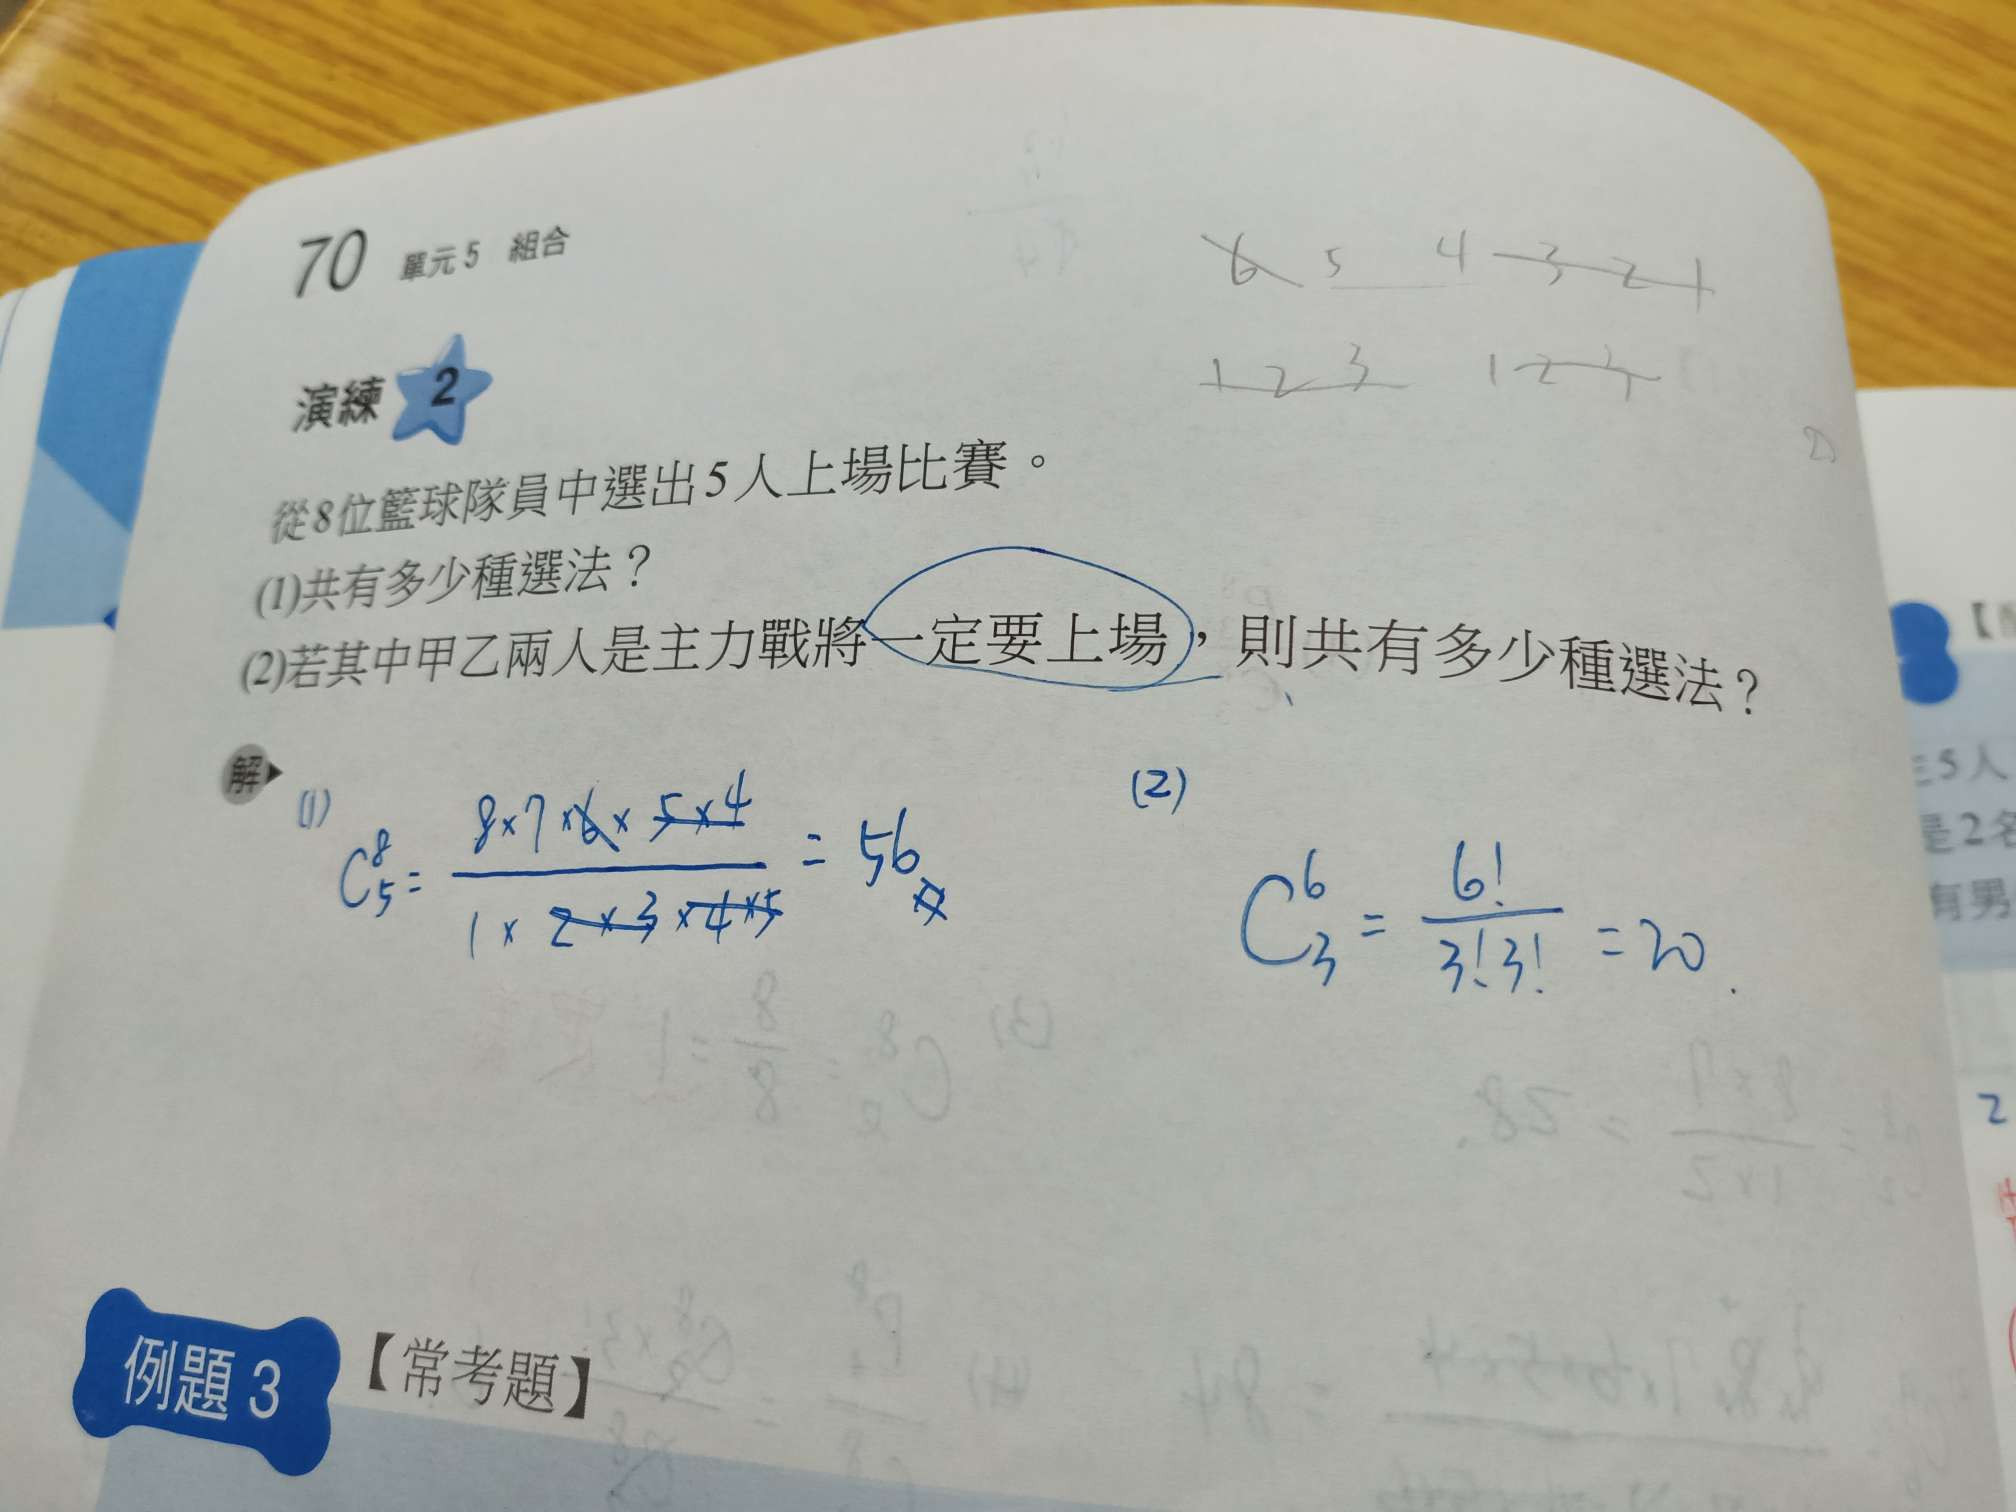 70 單元5 組合
6 5 4 3 2 1
1 2 3 1 2 3
演練 2
從8位籃球隊員中選出5人上場比賽。
(1)共有多少種選法？
(2)若其中甲乙兩人是主力戰將一定要上場，則共有多少種選法？
解
(1) C⁸₅ = 8×7×6×5×4 / 1×2×3×4×5 = 56
(2) C⁶₃ = 6! / 3!3! = 20.
例題 3 【常考題】
5人
是2名
有男
2